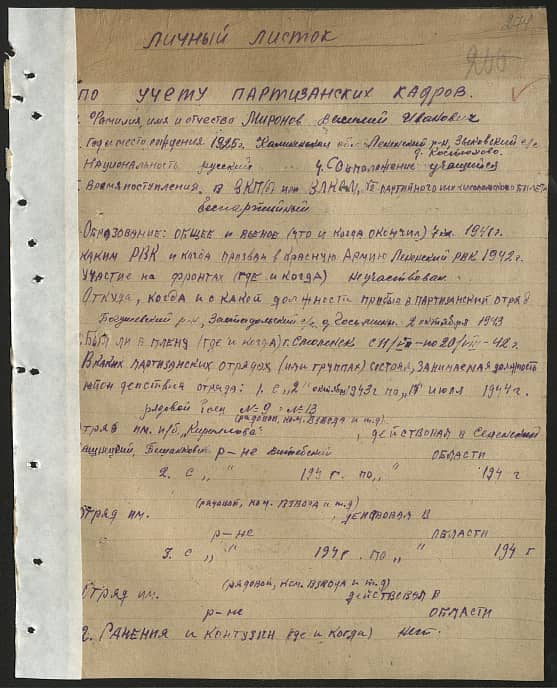 274
200
ЛИЧНЫЙ ЛИСТОК
ПО УЧЕТУ ПАРТИЗАНСКИХ КАДРОВ.
Фамилия, имя и отчество Миронов Василий Иванович
Год и место рождения 1925г. обл. Ленинский р-н, Зыковский с/с
д.
Национальность русский 4. Соц. положение учащийся
Время поступления в ВКП/б или ВЛКСМ, № партийного или комсомольского билета
беспартийный
Образование: общее и военое (что и когда окончил) 7 кл. 1941 г.
каким РВК и когда призван в Красную Армию Ленинский РВК 1942 г.
Участие на фронтах (где и когда) Не участвовал.
Откуда, когда и с какой должности прибыл в партизанский отряд
Богушевский р-н, с/с, д. 2 октября 1943
Был ли в плену (где и когда) г. Смоленск с 11/VII - по 20/VII - 42 г.
В каких партизанских отрядах (или группах) состоял, занимаемая должность
действия отряда: 1. С „2" октября 1943 г по „ " июля 1944 г.
рядовой №9 №13
(рядовой, ком. взвода и т.д)
отряд им. п/б. „Кириллова" , действовал в Сененском
Бешанкович р-не Витебский ОБЛАСТИ
2. С „ " 194 г. по „ " 194 г
(рядовой, ком. взвода и т.д)
Отряд им. действовал в
р-не ОБЛАСТИ
3. С „ " 194 г. по „ " 194 г
(рядовой, ком. взвода и т.д)
Отряд им. действовал в
р-не ОБЛАСТИ
2. РАНЕНИЯ И КОНТУЗИИ (где и когда) Нет.